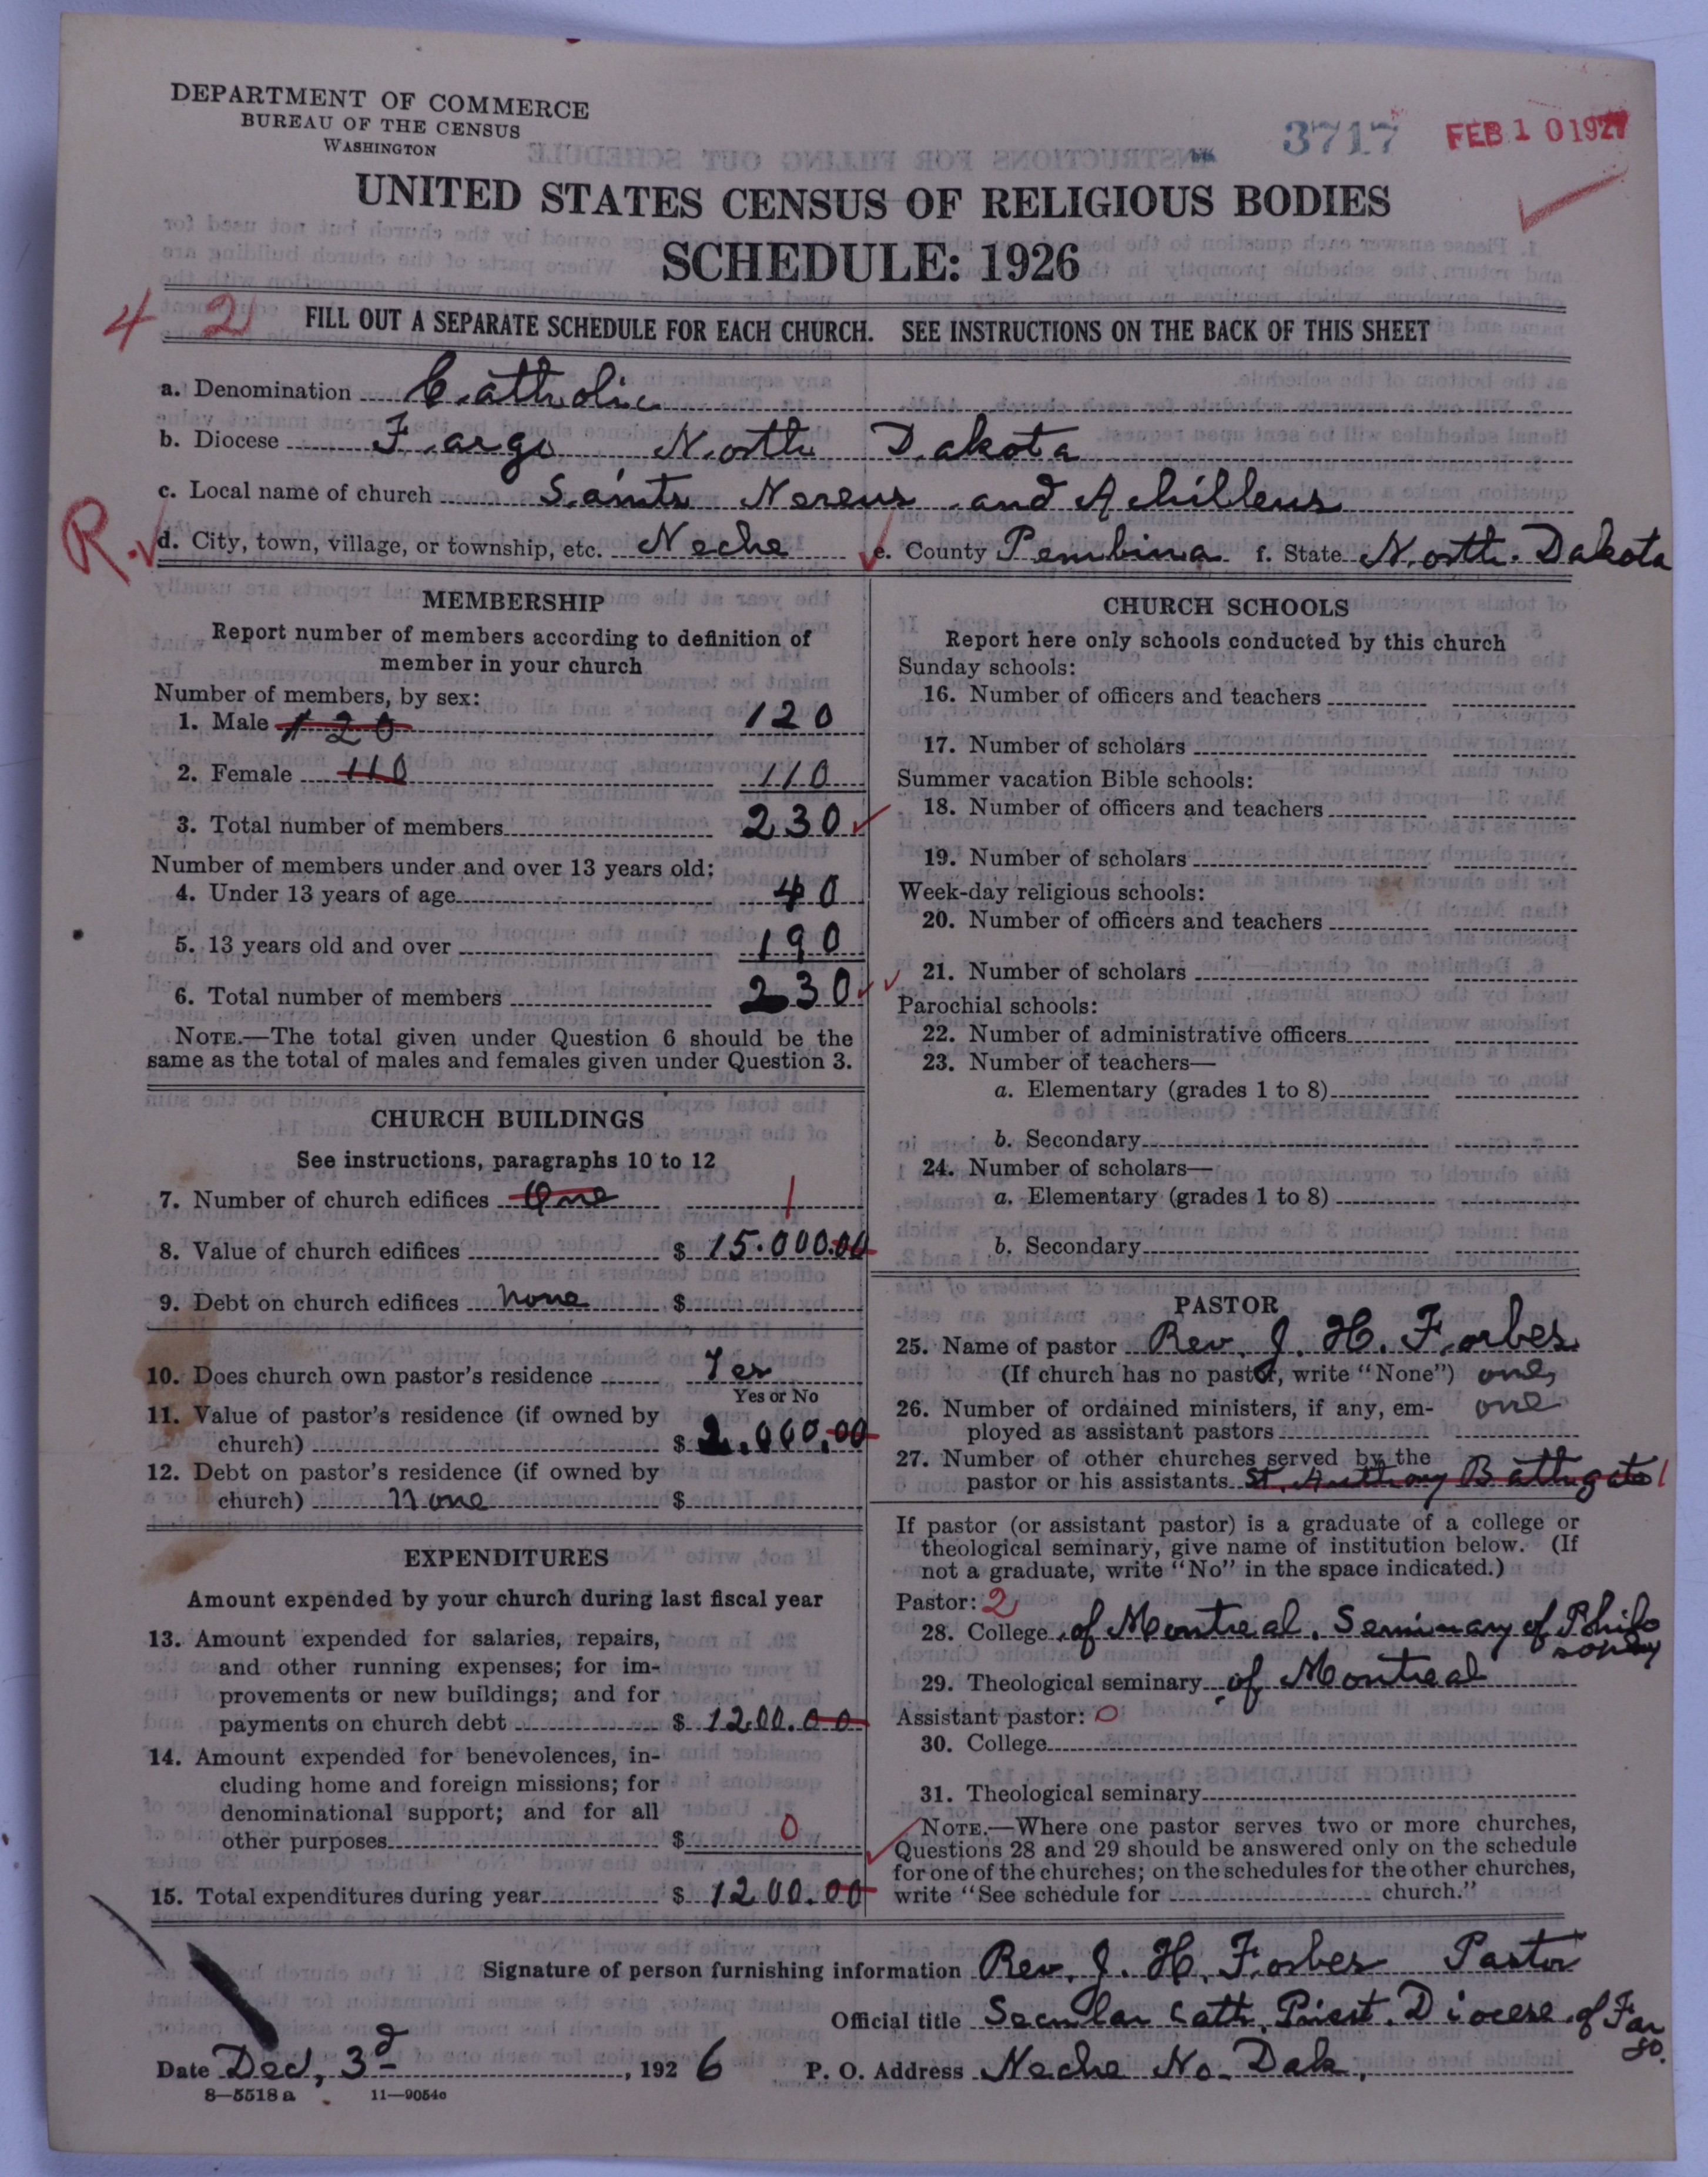 DEPARTMENT OF COMMERCE
BUREAU OF THE CENSUS
WASHINGTON
3717
FEB 10 1927
UNITED STATES CENSUS OF RELIGIOUS BODIES
SCHEDULE: 1926
4 2
FILL OUT A SEPARATE SCHEDULE FOR EACH CHURCH. SEE INSTRUCTIONS ON THE BACK OF THIS SHEET
a. Denomination Catholic
b. Diocese Fargo North Dakota
c. Local name of church Saints Nereus and Achilleus
R.
d. City, town, village, or township, etc. Neche e. County Pembina f. State North Dakota
MEMBERSHIP
Report number of members according to definition of
member in your church
Number of members, by sex:
1. Male 120 120
2. Female 110 110
3. Total number of members 230
Number of members under and over 13 years old:
4. Under 13 years of age 40
5. 13 years old and over 190
6. Total number of members 230
NOTE.—The total given under Question 6 should be the
same as the total of males and females given under Question 3.
CHURCH BUILDINGS
See instructions, paragraphs 10 to 12
7. Number of church edifices One 1
8. Value of church edifices $ 15.000.00
9. Debt on church edifices none $
10. Does church own pastor's residence Yes
Yes or No
11. Value of pastor's residence (if owned by
church) $ 2.000.00
12. Debt on pastor's residence (if owned by
church) none $
EXPENDITURES
Amount expended by your church during last fiscal year
13. Amount expended for salaries, repairs,
and other running expenses; for im-
provements or new buildings; and for
payments on church debt $ 1200.00
14. Amount expended for benevolences, in-
cluding home and foreign missions; for
denominational support; and for all
other purposes $ 0
15. Total expenditures during year $ 1200.00
CHURCH SCHOOLS
Report here only schools conducted by this church
Sunday schools:
16. Number of officers and teachers
17. Number of scholars
Summer vacation Bible schools:
18. Number of officers and teachers
19. Number of scholars
Week-day religious schools:
20. Number of officers and teachers
21. Number of scholars
Parochial schools:
22. Number of administrative officers
23. Number of teachers—
a. Elementary (grades 1 to 8)
b. Secondary
24. Number of scholars—
a. Elementary (grades 1 to 8)
b. Secondary
PASTOR
25. Name of pastor Rev. J. H. Forbes
(If church has no pastor, write "None") one,
26. Number of ordained ministers, if any, em- one
ployed as assistant pastors
27. Number of other churches served by the
pastor or his assistants St. Anthony Bathgate 1
If pastor (or assistant pastor) is a graduate of a college or
theological seminary, give name of institution below. (If
not a graduate, write "No" in the space indicated.)
Pastor: 2
28. College of Montreal. Seminary of Philo
sophy
29. Theological seminary of Montreal
Assistant pastor: 0
30. College
31. Theological seminary
NOTE.—Where one pastor serves two or more churches,
Questions 28 and 29 should be answered only on the schedule
for one of the churches; on the schedules for the other churches,
write "See schedule for church."
Signature of person furnishing information Rev. J. H. Forbes Pastor
Official title Secular Cath. Priest. Diocese of Far
go.
Date Dec, 3d, 1926 P. O. Address Neche No. Dak.
8—5518a 11—9054c